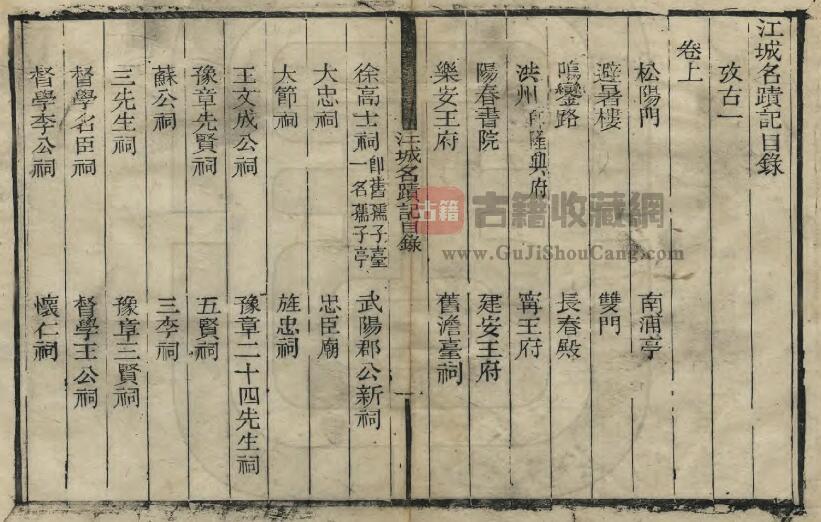 江城名蹟記目錄
攷古一
卷上
松陽門 南浦亭
避暑樓 雙門
鳴鑾路 長春殿
洪州 即隆興府 寗王府
陽春書院 建安王府
樂安王府 舊澹臺祠
江城名蹟記目錄
徐高士祠 即舊孺子臺一名孺子亭 武陽郡公新祠
大忠祠 忠臣廟
大節祠 旌忠祠
王文成公祠 豫章二十四先生祠
豫章先賢祠 五賢祠
蘇公祠 三李祠
三先生祠 豫章三賢祠
督學名臣祠 督學王公祠
督學李公祠 懷仁祠
古籍
古籍收藏網
www.GuJiShouCang.com